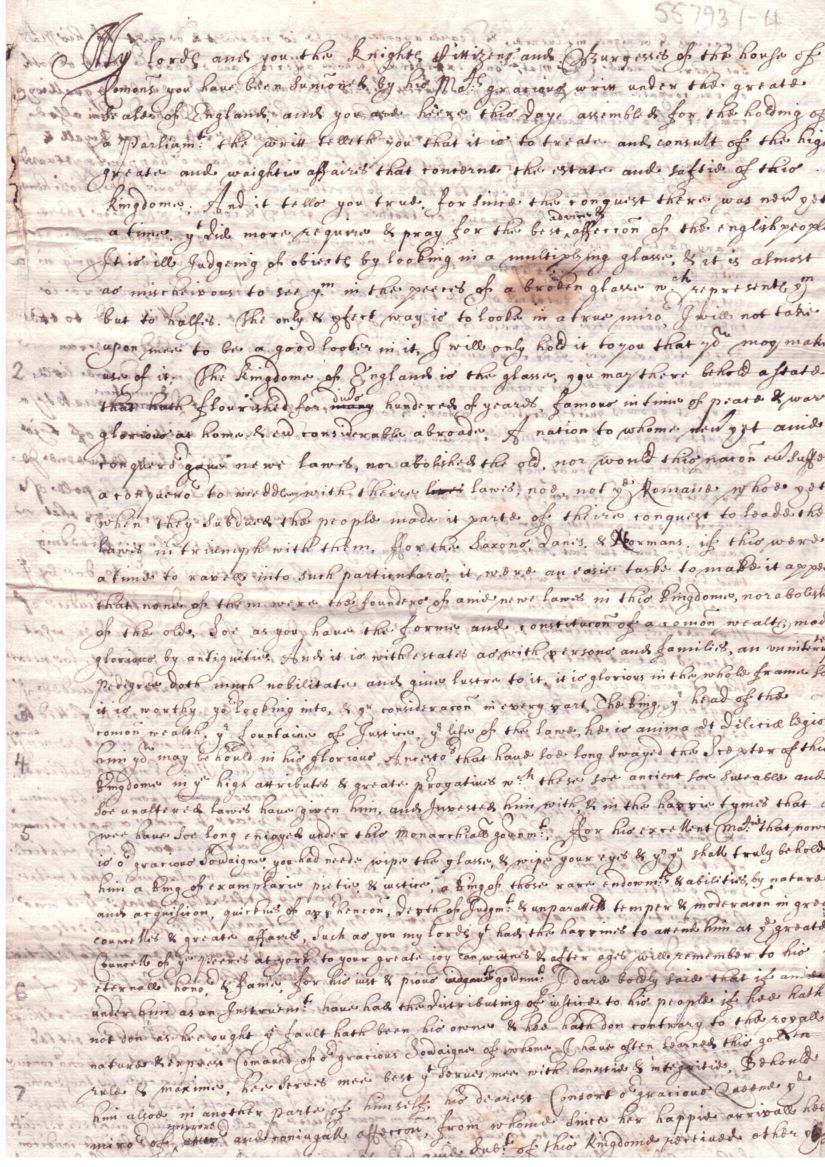 55793/-4
My lords and you the Knights Cittizens and Burgesses of the house of
Comons you have been sumoned by his Mats gracious writt under the greate
Seale of England, and you are heere this daye assembled for the holding of
a Parliamt. the writt telleth you that it is to treate and consult of the high
greate and waightie affaires that concerne the estate and saftie of this
Kingdome. And it tells you true, for since the conquest there was never yet
a time yt did more require & pray for the best advice & affeccon of the english people
It is ill Judgeing of objects by looking in a multiplying glasse, & it is almost
as mischeivous to see ym in the peeces of a broken glasse wch represents ym
but to halfes. The only & pfect way is to looke in a true miror, I will not take
upon mee to be a good looker in it, I will only hold it to you that you may make
2 use of it. The Kingdome of England is the glasse, you may there behold a state
that hath flourished for many hundered of yeares famous in time of peace & warr
glorious at home & considerable abroade. A nation to whome never yet anie
conqueror gave newe lawes, nor abolished the old, nor would this nacon ever suffer
a conqueror to meddle with theire lawes, noe not ye Romaines, whoe yet
when they subdued the people made it parte of theire conquest to leade the
lawes in triumph with them. For the Saxons, Danes, & Normans, if this were
a time to ravell into such particulars, it were an easie taske to make it appeare
that none of them were the founders of anie newe lawes in this Kingdome, nor abolish
of the old. Soe as you have the forme and constitucon of a comon wealth made
glorious by antiquitie. And it is with estates as with persons and families, an
pedigree doth much nobilitate and give lustre to it, it is glorious in the whole frame
3 it is worthy yor looking into, & yr consideracon in every part. The King ye head of the
comon wealth, ye fountaine of Justice, ye life of the lawe, he is anima et deliciæ legis
4 him you may behould in his glorious Ancestors that have soe long swayed the Scepter of this
Kingdome in ye high attributes & greate progatives wch those soe ancient soe suteable and
soe unaltered lawes have given him, and Invested him with & in the happie tymes that
5 wee have soe long enjoyed under this Monarchiall governmt. For his excellent Matie that now
is or gracious Soveraigne you had neede wipe the glasse, & wipe your eyes & yn you shall truly behold
him a King of examplarie pietie & justice, a King of those rare endowmts & abilities, by nature
and acquisicion, quicknes of apphencon, depth of Judgmt & unparalleld temper & moderacon in greate
councells & greate affaires, such as you my lords yt had the happines to attend him at ye greate
Councell of ye Peeres at york to your greate joy can witnes & after ages will remember to his
eternall honor & fame, for his just & pious governmt. I dare boldly saie that if anie
6 under him as an Instrumt have had the distributing of justice to his people if hee hath
not don as he ought ye fault hath been his owne & hee hath don contrary to the royall
nature & expresse Comand of or gracious Soveraigne of whome I have often learned this golden
rule & maxime, hee serves mee best yt serves mee with honestie & integritie. Behould
7 him alsoe in another parte of himselfe, his dearest Consort or gracious Queene ye
miror of and conjugall affeccon, from whome since her happie arrivall heere
of this Kingdome perceived other